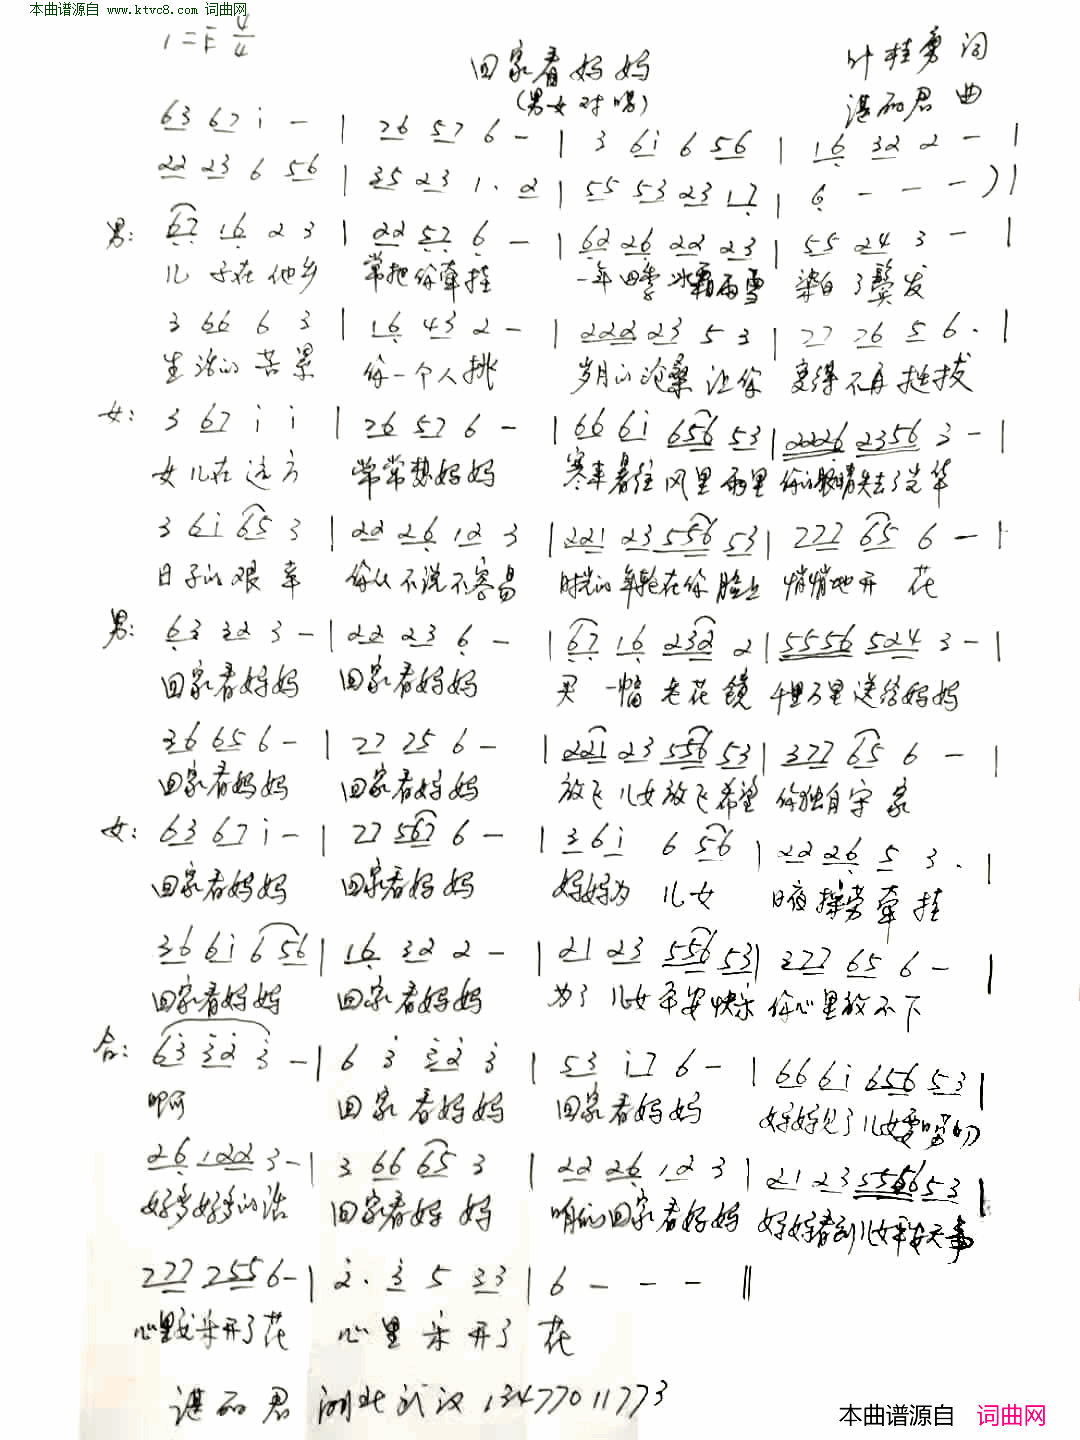 本曲谱源自
www.ktvc8.com 词曲网
1=F 4/4
回家看妈妈
叶桂勇 词
(男女对唱)
谌丽君 曲
63 67 i - | 76 57 6 - | 3 6i 6 56 | 16 32 2 - |
22 23 6 56 | 35 23 1. 2 | 55 53 23 17 | 6 - - - )|
男: 67 16 2 3 | 22 57 6 - | 62 26 22 23 | 55 24 3 - |
儿子在他乡 常把你牵挂 一年四季冰霜雨雪 染白了鬓发
3 66 6 3 | 16 43 2 - | 222 23 5 3 | 77 76 5 6. |
生活的苦累 你一个人挑 岁月的沧桑让你 变得不再挺拔
女: 3 67 i i | 76 57 6 - | 66 6i 656 53 | 2226 2356 3 - |
女儿在远方 常常想妈妈 寒来暑往风里雨里 你的眼睛失去了光华
3 6i 65 3 | 22 26 12 3 | 221 23 556 53 | 777 65 6 - |
日子的艰辛 你从不说不容易 时光的年轮在你脸上 悄悄地开花
男: 63 32 3 - | 22 23 6 - | 67 16 232 2 | 5556 524 3 - |
回家看妈妈 回家看妈妈 买一幅老花镜 千里万里送给妈妈
36 65 6 - | 77 75 6 - | 221 23 556 53 | 377 65 6 - |
回家看妈妈 回家看妈妈 放飞儿女放飞希望 你独自守家
女: 63 67 i - | 77 567 6 - | 36i 6 56 | 22 26 5 3. |
回家看妈妈 回家看妈妈 妈妈为儿女 日夜操劳牵挂
36 6i 6 56 | 16 32 2 - | 21 23 556 53 | 377 65 6 - |
回家看妈妈 回家看妈妈 为了儿女平安快乐 你心里放不下
合: 63 32 3 - | 6 3 32 3 | 53 i7 6 - | 66 6i 656 53 |
啊 回家看妈妈 回家看妈妈 妈妈见了儿女要唠叨
26 122 3 - | 3 66 65 3 | 22 26 12 3 | 21 23 5556 53 |
好多好多的话 回家看妈妈 咱们回家看妈妈 妈妈看到儿女平安无事
777 7556 - | 2. 3 5 33 | 6 - - - ||
心里乐开了花 心里乐开了花
谌丽君 湖北武汉 13477011773
本曲谱源自 词曲网